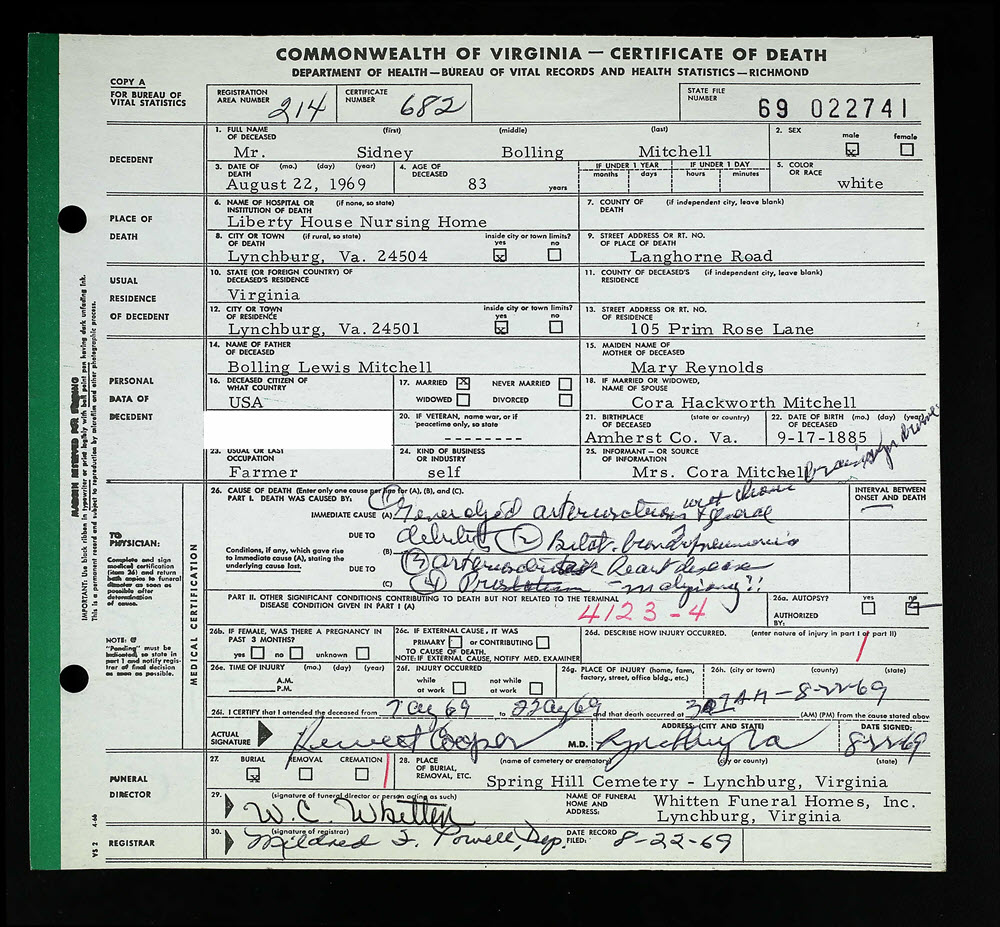 COMMONWEALTH OF VIRGINIA — CERTIFICATE OF DEATH
DEPARTMENT OF HEALTH—BUREAU OF VITAL RECORDS AND HEALTH STATISTICS—RICHMOND
COPY A
FOR BUREAU OF
VITAL STATISTICS
REGISTRATION AREA NUMBER 214
CERTIFICATE NUMBER 682
STATE FILE NUMBER 69 022741
DECEDENT
1. FULL NAME OF DECEASED (first) (middle) (last)
Mr. Sidney Bolling Mitchell
2. SEX male ☒ female ☐
3. DATE OF DEATH (mo.) (day) (year)
August 22, 1969
4. AGE OF DECEASED
83 years
IF UNDER 1 YEAR months days
IF UNDER 1 DAY hours minutes
5. COLOR OR RACE
white
PLACE OF
DEATH
6. NAME OF HOSPITAL OR INSTITUTION OF DEATH (if none, so state)
Liberty House Nursing Home
7. COUNTY OF DEATH (if independent city, leave blank)
8. CITY OR TOWN OF DEATH (if rural, so state) inside city or town limits? yes ☒ no ☐
Lynchburg, Va. 24504
9. STREET ADDRESS OR RT. NO. OF PLACE OF DEATH
Langhorne Road
USUAL
RESIDENCE
OF DECEDENT
10. STATE (OR FOREIGN COUNTRY) OF DECEASED'S RESIDENCE
Virginia
11. COUNTY OF DECEASED'S RESIDENCE (if independent city, leave blank)
12. CITY OR TOWN OF RESIDENCE inside city or town limits? yes ☒ no ☐
Lynchburg, Va. 24501
13. STREET ADDRESS OR RT. NO. OF RESIDENCE
105 Prim Rose Lane
PERSONAL
DATA OF
DECEDENT
14. NAME OF FATHER OF DECEASED
Bolling Lewis Mitchell
15. MAIDEN NAME OF MOTHER OF DECEASED
Mary Reynolds
16. DECEASED CITIZEN OF WHAT COUNTRY
USA
17. MARRIED ☒ NEVER MARRIED ☐
WIDOWED ☐ DIVORCED ☐
18. IF MARRIED OR WIDOWED, NAME OF SPOUSE
Cora Hackworth Mitchell
20. IF VETERAN, name war, or if peacetime only, so state
--------
21. BIRTHPLACE OF DECEASED (state or country)
Amherst Co. Va.
22. DATE OF BIRTH OF DECEASED (mo.) (day) (year)
9-17-1885
23. USUAL OR LAST OCCUPATION
Farmer
24. KIND OF BUSINESS OR INDUSTRY
self
25. INFORMANT – OR SOURCE OF INFORMATION
Mrs. Cora Mitchell
MARGIN RESERVED FOR BINDING
IMPORTANT: Use black ribbon in typewriter or print legibly with ball point pen having dark unfading ink.
This is a permanent record and subject to reproduction by microfilm and other photographic process.
TO
PHYSICIAN:
Complete and sign
medical certification
(item 26) and return
both copies to funeral
director as soon as
possible after
determination
of cause.
NOTE: If
"Pending" must be
indicated, so state in
part I and notify regis-
trar of final decision
as soon as possible.
MEDICAL CERTIFICATION
26. CAUSE OF DEATH (Enter only one cause per line for (A), (B), and (C).
PART I. DEATH WAS CAUSED BY:
INTERVAL BETWEEN ONSET AND DEATH
IMMEDIATE CAUSE (A) (1) Generalized & general
DUE TO debility (2) Bilat. bronchopneumonia
Conditions, if any, which gave rise to immediate cause (A), stating the underlying cause last.
(B)
DUE TO (3) heart disease
(C) (4) malignancy?!
PART II. OTHER SIGNIFICANT CONDITIONS CONTRIBUTING TO DEATH BUT NOT RELATED TO THE TERMINAL DISEASE CONDITION GIVEN IN PART I (A)
4123-4
26a. AUTOPSY? yes ☐ no ☒
AUTHORIZED BY:
26b. IF FEMALE, WAS THERE A PREGNANCY IN PAST 3 MONTHS?
yes ☐ no ☐ unknown ☐
26c. IF EXTERNAL CAUSE, IT WAS
PRIMARY ☐ or CONTRIBUTING ☐
TO CAUSE OF DEATH.
NOTE: IF EXTERNAL CAUSE, NOTIFY MED. EXAMINER
26d. DESCRIBE HOW INJURY OCCURRED. (enter nature of injury in part I or part II)
26e. TIME OF INJURY (mo.) (day) (year)
A.M.
P.M.
26f. INJURY OCCURRED
while at work ☐ not while at work ☐
26g. PLACE OF INJURY (home, farm, factory, street, office bldg., etc.)
26h. (city or town) (county) (state)
26i. I CERTIFY that I attended the deceased from 69 to 69 and that death occurred at AM-8-22-69 (AM) (PM) from the cause stated above
ACTUAL SIGNATURE Cooper M.D.
ADDRESS: (CITY AND STATE) Lynchburg Va
DATE SIGNED: 8-22-69
FUNERAL
DIRECTOR
27. BURIAL ☒ REMOVAL ☐ CREMATION ☐
28. PLACE OF BURIAL, REMOVAL, ETC. (name of cemetery or crematory) (city or county) (state)
Spring Hill Cemetery - Lynchburg, Virginia
29. (signature of funeral director or person acting as such)
W.C. Whitten
NAME OF FUNERAL HOME AND ADDRESS:
Whitten Funeral Homes, Inc.
Lynchburg, Virginia
REGISTRAR
30. (signature of registrar)
Mildred F. Powell, Dep.
DATE RECORD FILED: 8-22-69
VS 2 4-66